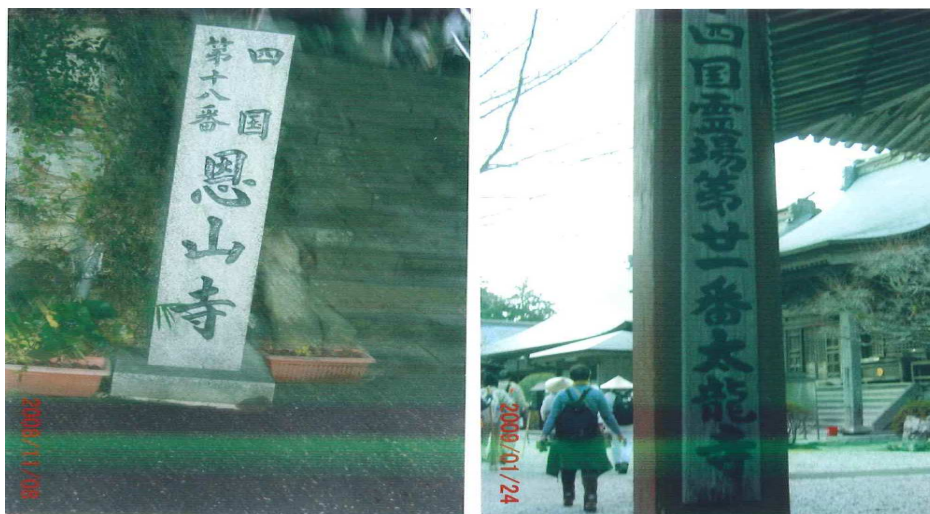 四国
第十八番
恩山寺
2008/11/08
四国霊場第廿一番太龍寺
2009/01/24